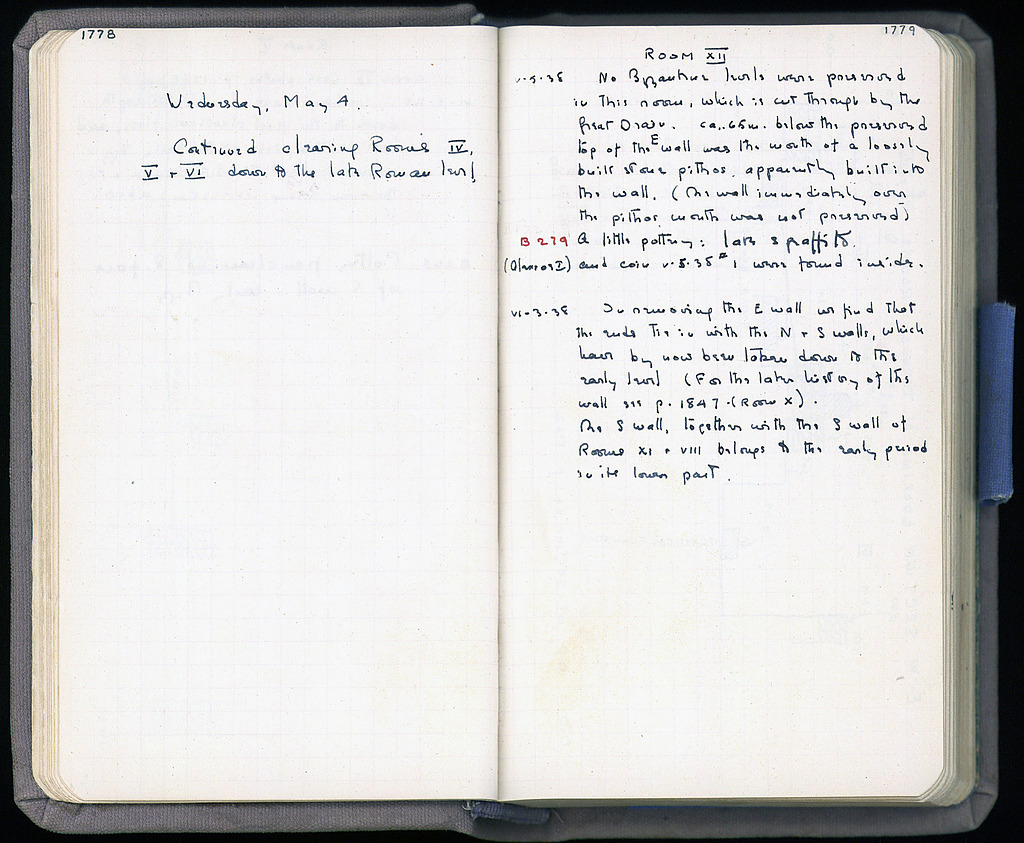 1778
Wednesday, May 4
Continued clearing Rooms IV,
V + VI down to the late Roman level
1779
ROOM XII
V·5·38 No Byzantine levels were preserved
in this room, which is cut through by the
Great Drain. ca. .65m. below the preserved
top of the E wall was the mouth of a loosely
built stone pithos, apparently built into
the wall. (The wall immediately over
the pithos mouth was not preserved)
B 279 A little pottery: late sgraffito,
(Manuel I) and coin V·5·38 #1 were found inside.
VI-3-38 In removing the E wall we find that
the ends tie in with the N + S walls, which
have by now been taken down to the
early level (For the later history of this
wall see p. 1847 (Room X).
The S wall, together with the S wall of
Rooms XI + VIII belongs to the early period
in its lower part.